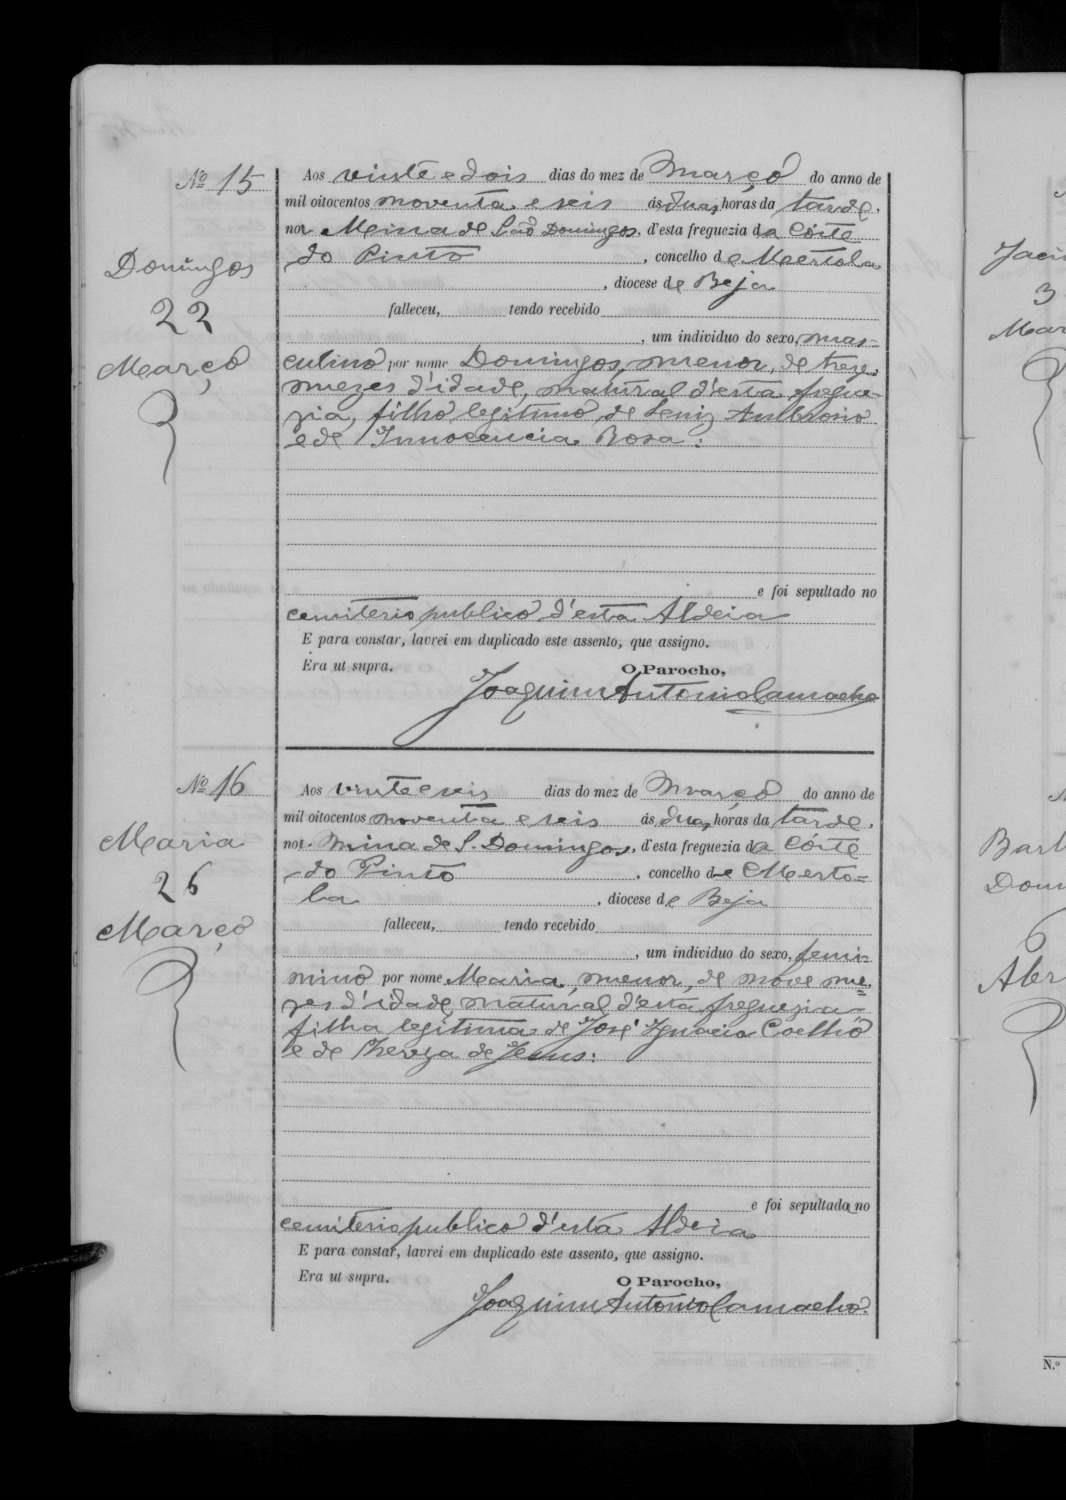 Nº 15
Domingos
22
Março
Aos vinte e dois dias do mez de Março do anno de
mil oitocentos noventa e seis ás duas horas da tarde,
no a Mina de São Domingos, d'esta freguezia da Côrte
do Pinto, concelho de Mertola
, diocese de Beja
falleceu, tendo recebido
, um individuo do sexo, mas=
culino por nome Domingos, menor, de treze
mezes d'idade, natural d'esta fregue-
zia, filho legitimo de Ambrosio
e de Innocencia Rosa:
e foi sepultado no
cemiterio publico d'esta Aldeia
E para constar, lavrei em duplicado este assento, que assigno.
Era ut supra.
O Parocho,
Joaquim Antonio Camacho
Nº 16
Maria
26
Março
Aos vinte e seis dias do mez de Março do anno de
mil oitocentos noventa e seis ás duas horas da tarde,
no a Mina de S. Domingos, d'esta freguezia da Côrte
do Pinto, concelho de Merto=
la, diocese de Beja
falleceu, tendo recebido
, um individuo do sexo, femi=
nino por nome Maria, menor, de nove me=
zes d'idade, natural d'esta freguezia
filha legitima de José Ignacio Coelho
e de Thereza de Jesus:
e foi sepultada no
cemiterio publico d'esta Aldeia
E para constar, lavrei em duplicado este assento, que assigno.
Era ut supra.
O Parocho,
Joaquim Antonio Camacho.
3
N.º